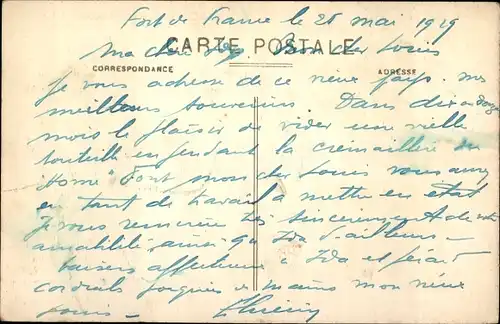 Fort de France le 25 mai 1919
Ma chère Ida Bon cher Louis
CARTE POSTALE
CORRESPONDANCE
ADRESSE
Je vous adresse de ce vieux pays mes
meilleurs souvenirs. Dans dix ou douze
mois le plaisir de vider une vielle
bouteille en pendant la crémaillère du
"Home" dont mon cher Louis vous avez
eu tant de travail a mettre en état
Je vous remercie très sincèrement de votre
amabilité ainsi que Ida d'ailleurs –
baisers affectueux a Ida et
cordiale poignée de mains mon vieux
Louis –